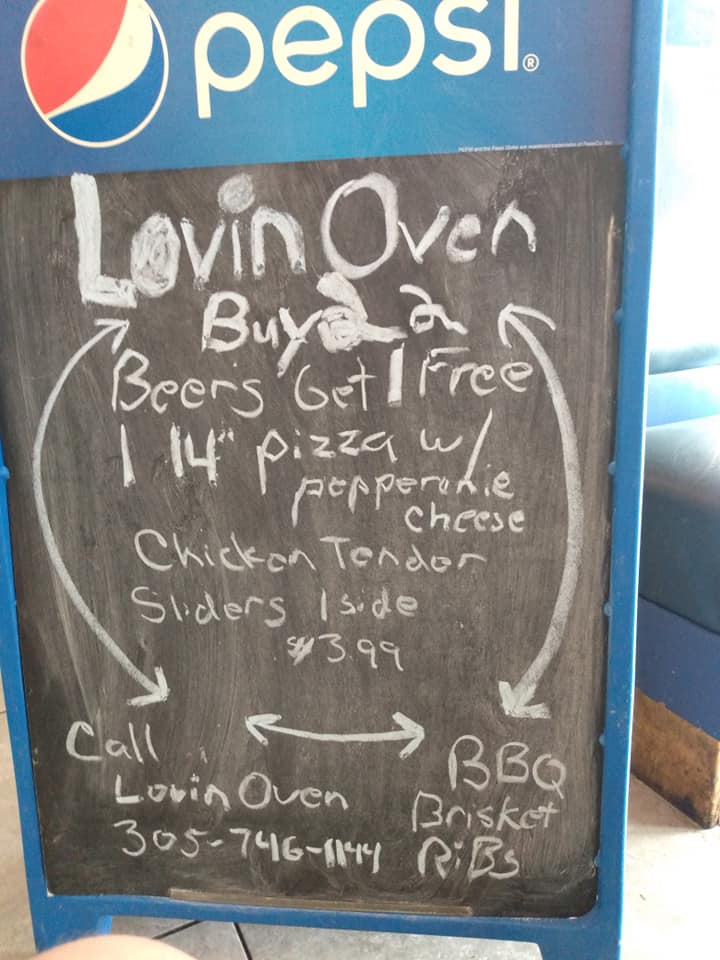 pepsi®
Lovin Oven
Buy 2
Beers Get 1 Free
1 14" pizza w/
pepperonie
cheese
Chicken Tender
Sliders 1 side
$3.99
Call
Lovin Oven
305-746-1144
BBQ
Brisket
RiBs